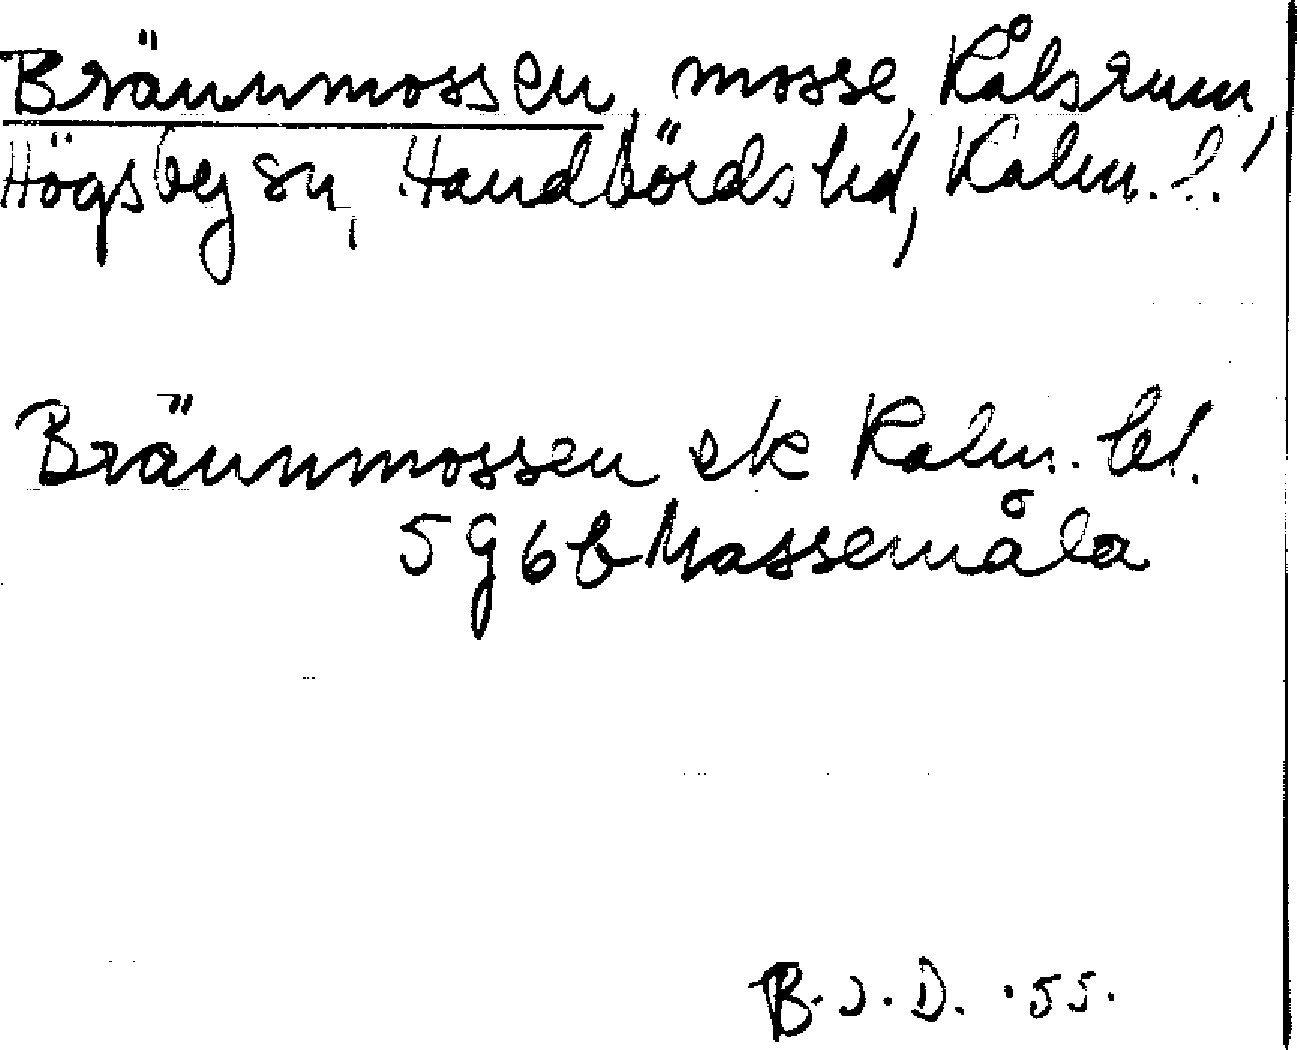 Brännmossen, mosse, Kålsrum,
Högsby sn, Handbörds hd, Kalm. l.
Brännmossen ek Kalm. bl.
5 g 6 b Massemåla
B.J.D. .55.